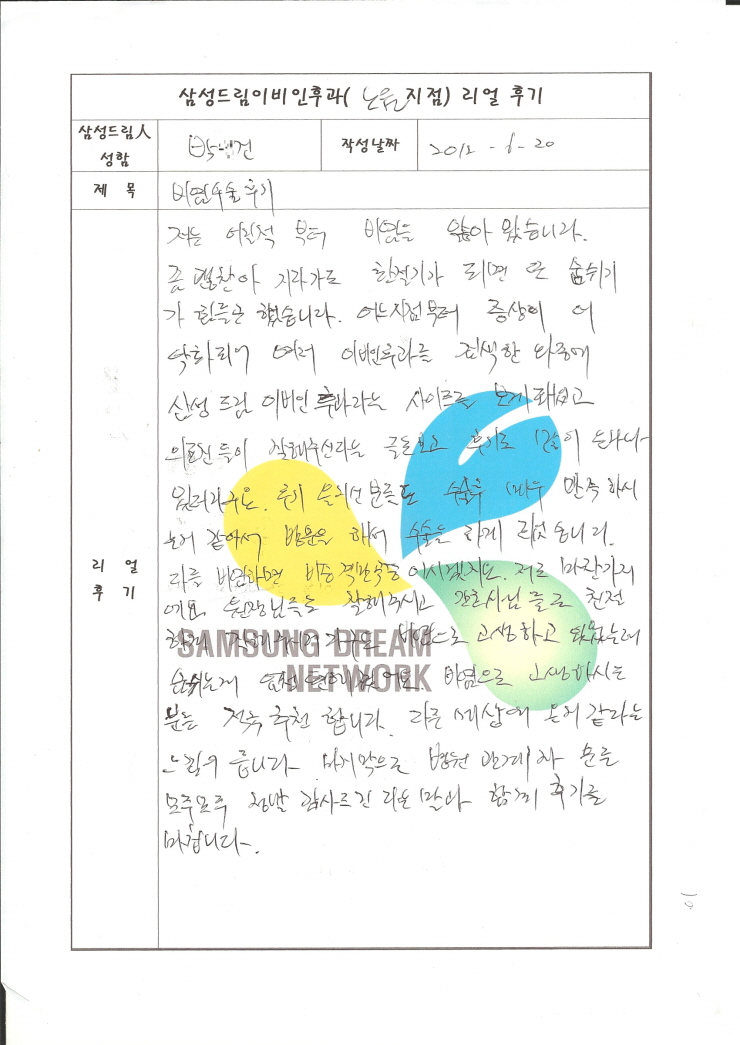 삼성드림이비인후과( 노원 지점) 리얼 후기
삼성드림人 성함
작성날짜 2012 - 6 - 20
제 목 비염수술후기
리 얼 후 기
저는 어릴적 부터 비염을 앓아 왔습니다.
좀 괜찮아 지라가도 환절기가 되면 또 숨쉬기
가 힘들곤 했습니다. 어느지점부터 증상이 더
악화되어 여러 이비인후과를 검색한 와중에
삼성 드림 이비인 후과라는 사이트를 보게되었고
의료진들이 잘해주신라는 글들보고 후기도 많이
있더라구요. 후기 올리신 분들도 수술후 매우 만족 하시
는거 같아서 방문을 해서 수술을 하게 되었습니다.
다들 비염하면 비중격만곡증 이시겠지요. 저도 마찬가지
에요. 원장님들도 잘해주시고 간호사님들도 친절
비염으로 고생하고 있었는데
숨쉬는게 비염으로 고생하시는
분들 적극 추천 합니다. 다른 세상에 온거 같다는
느낌이 듭니다. 마지막으로 병원 관계자 분들
모두모두 정말 감사드린 다는 말과 함께 후기를
마칩니다.
SAMSUNG DREAM
NETWORK